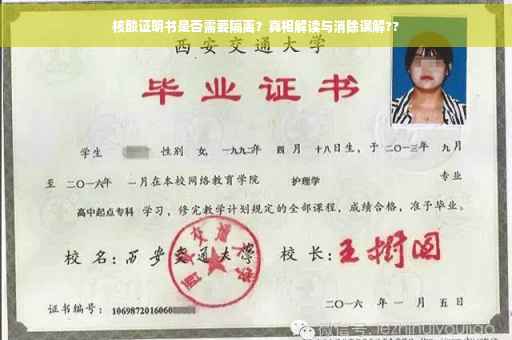 核酸证明书是否需要隔离？真相解读与消除误解??
西安交通大学
毕业证书
学生 性别 女，一九九二年 四月 十八日生，于二〇一三年 九月
至 二〇一六年 一月在本校网络教育学院 护理学 专业
高中起点专科 学习，修完教学计划规定的全部课程，成绩合格，准予毕业。
校名：西安交通大学 校长：王树国
西安交通大学
证书编号：1069872016060
二〇一六年一月五日
微信号: jiezhihuiyoujiao